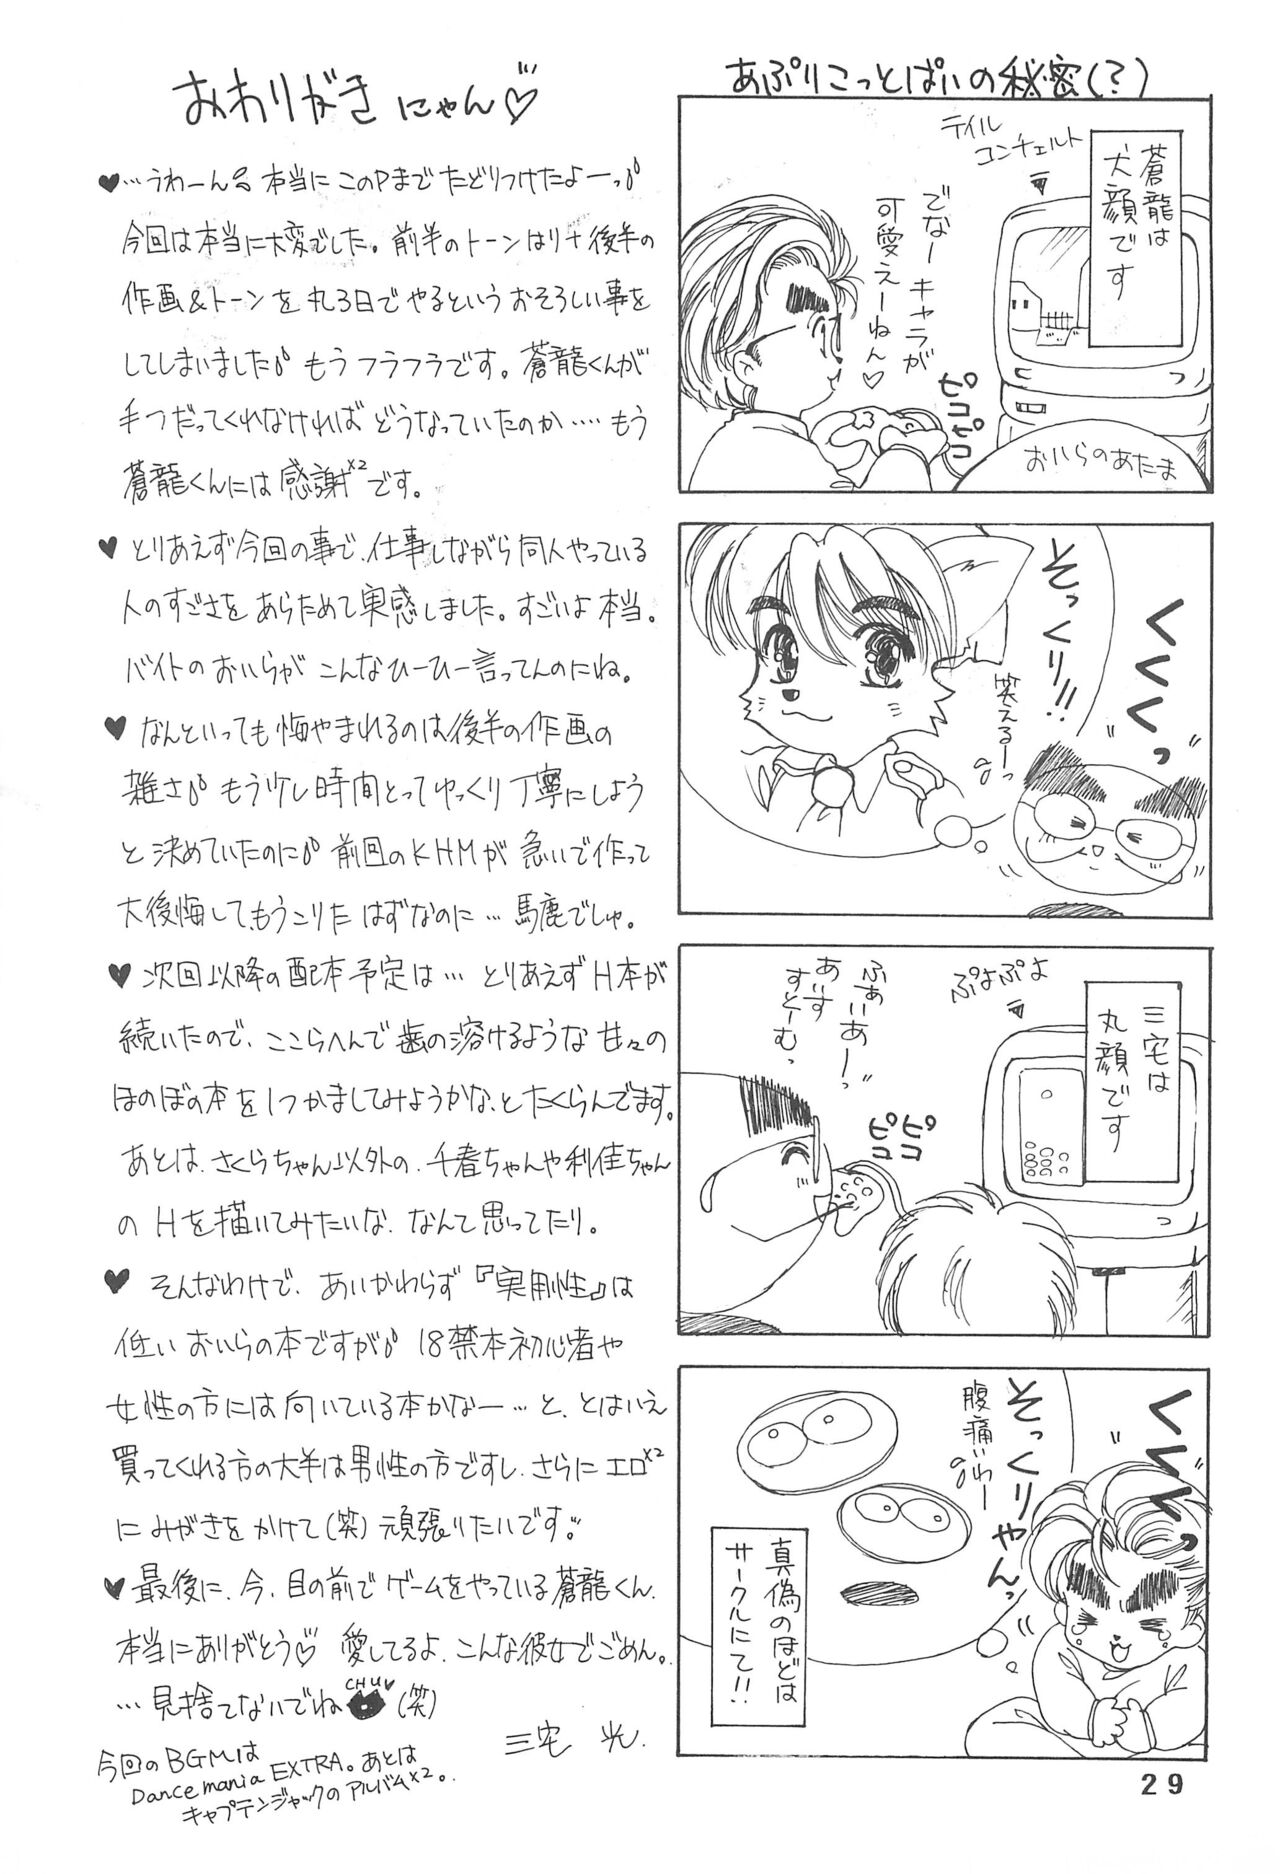 おわりがきにゃん♡
♥…うわーん 本当にこのPまでたどりつけたよーっ
今回は本当に大変でした。前半のトーンはり＋後半の
作画＆トーンを丸3日でやるというおそろしい事を
してしまいました もうフラフラです。蒼龍くんが
手つだってくれなければどうなっていたのか…‥もう
蒼龍くんには感謝×2です。
♥とりあえず今回の事で、仕事しながら同人やっている
人のすごさをあらためて実感しました。すごいよ本当。
バイトのおいらがこんなひーひー言ってんのにね。
♥なんといっても悔やまれるのは後半の作画の
雑さ もう少し時間とってゆっくり丁寧にしよう
と決めていたのに 前回のKHMが急いで作って
大後悔して、もうこりたはずなのに…馬鹿でしゅ。
♥次回以降の配本予定は…とりあえずH本が
続いたので、ここらへんで歯の溶けるような甘々の
ほのぼの本を1つかましてみようかな、とたくらんでます。
あとは、さくらちゃん以外の、千春ちゃんや利佳ちゃん
のHを描いてみたいな、なんて思ってたり。
♥そんなわけで、あいかわらず『実用性』は
低いおいらの本ですが 18禁本初心者や
女性の方には向いている本かなー…と、とはいえ
買ってくれる方の大半は男性の方ですし、さらにエロ×2
にみがきをかけて(笑)頑張りたいです。
♥最後に、今、目の前でゲームをやっている蒼龍くん、
本当にありがとう♡ 愛してるよ、こんな彼女でごめん。
…見捨てないでね CHU♥ (笑)
三宅 光
今回のBGMは
Dance mania EXTRA。あとは
キャプテンジャックのアルバム×2。
あぷりこっとぱいの秘密(？)
蒼龍は
犬顔です
テイル
コンチェルト
でなー キャラが
可愛えーねん♡
ピコピコ
おいらのあたま
くくくっ
そっくり!!
笑えるーっ
三宅は
丸顔です
ぷよぷよ
ふぁいあーっ
あいす
すとーむっ
ピコ
ピコ
くくくっ
そっくりやんっ
腹痛いわー
真偽のほどは
サークルにて!!
29